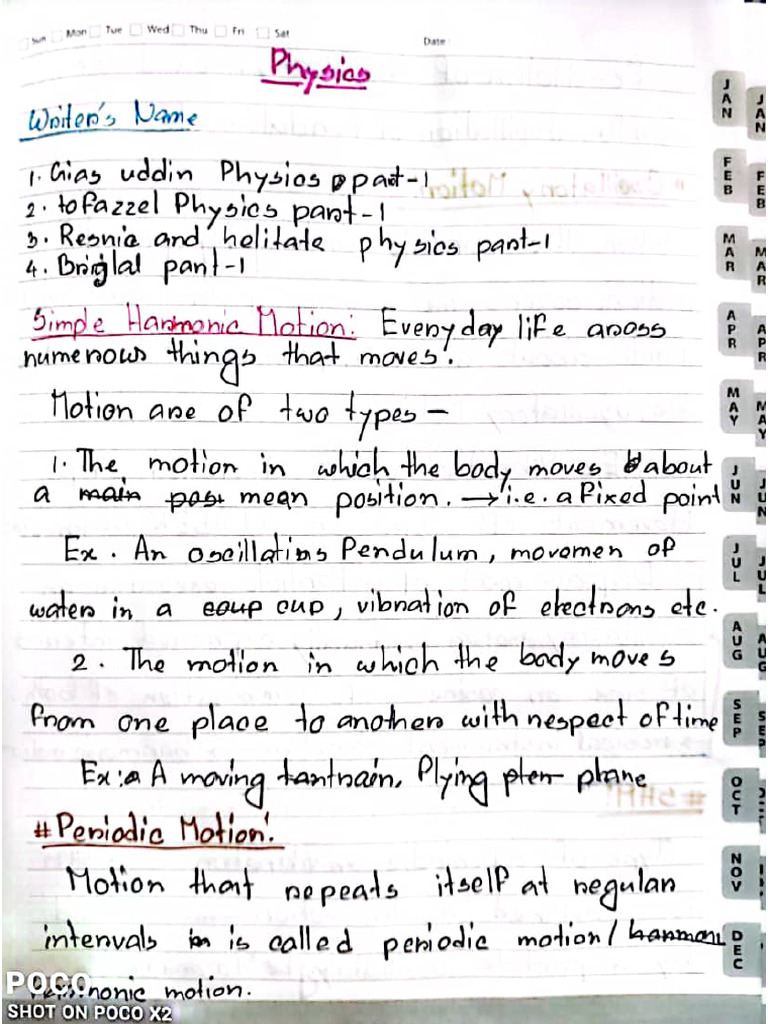 Sun Mon Tue Wed Thu Fri Sat
Date
Physics
Writer's Name
1. Gias uddin Physics part-1
2. tofazzel Physics part-1
3. Resnic and helitate physics part-1
4. Brijlal part-1
Simple Harmonic Motion: Everyday life aross
numerous things that moves.
Motion are of two types –
1. The motion in which the body moves about
a main post mean position. → i.e. a fixed point
Ex. An oscillatins Pendulum, movomen of
water in a coup cup, vibration of electrons etc.
2. The motion in which the body moves
from one place to another with respect of time
Ex: A moving train, Plying plane
# Periodic Motion:
Motion that repeats itself at regular
intervals is called periodic motion/ harmon
monic motion.
JAN
FEB
MAR
APR
MAY
JUN
JUL
AUG
SEP
OCT
NOV
DEC
JAN
FEB
MAR
APR
MAY
JUN
JUL
AUG
SEP
POCO
SHOT ON POCO X2